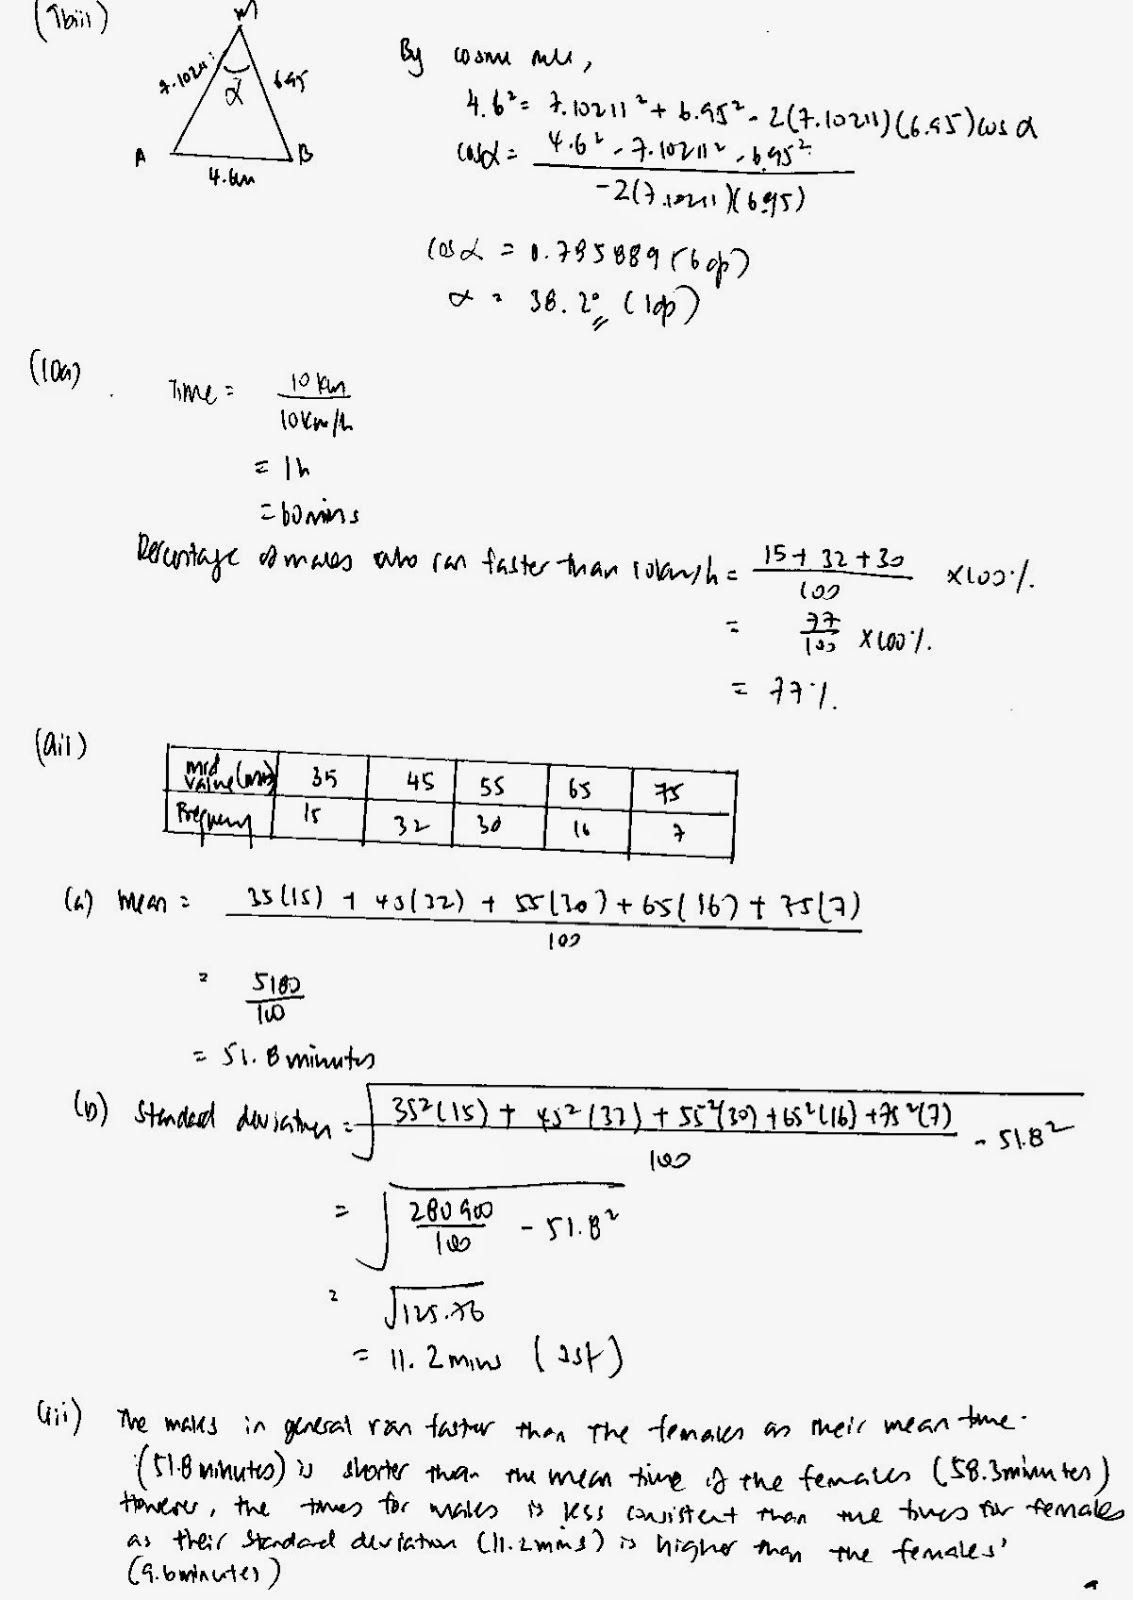 (9biii)
M
7.10211
6.95
α
A
B
4.6m
By cosine rule,
4.6² = 7.10211² + 6.95² - 2(7.10211)(6.95)cos α
cosα = 4.6² - 7.10211² - 6.95²
-2(7.10211)(6.95)
cos α = 0.785889 (6dp)
α = 38.2° (1dp)
(10a)
Time = 10 km
10km/h
= 1h
= 60mins
Percentage of males who ran faster than 10km/h = 15 + 32 + 30 × 100%
100
= 77 × 100%
100
= 77%
(aii)
mid value (min) 35 45 55 65 75
Frequency 15 32 30 16 7
(a) mean = 35(15) + 45(32) + 55(30) + 65(16) + 75(7)
100
= 5180
100
= 51.8 minutes
(b) standard deviation = √ 35²(15) + 45²(32) + 55²(30) + 65²(16) + 75²(7) - 51.8²
100
= √ 280900 - 51.8²
100
= √125.76
= 11.2 mins (3sf)
(iii) The males in general ran faster than the females as their mean time
(51.8 minutes) is shorter than the mean time of the females (58.3 minutes)
However, the times for males is less consistent than the times for females
as their standard deviation (11.2 mins) is higher than the females'
(9.6 minutes)